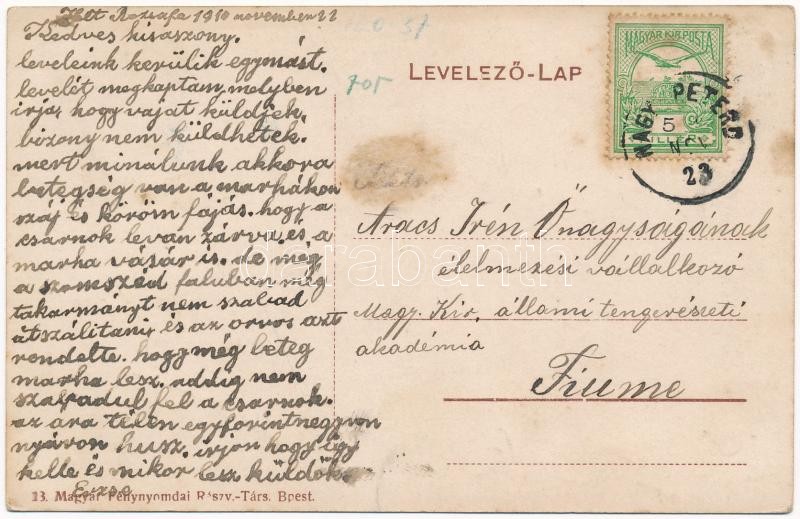 1910 november 22
Kedves kisaszony.
leveleink kerülik egymást.
levelét megkaptam, melyben
irja, hogy vajat küldjek,
bizony nem küldhetek.
mert minálunk akkora
betegség van a marhákon
száj és köröm fájás. hogy a
csarnok le van zárva. és a
marha vásár is. de még
a szomszéd faluban még
takarmányt nem szabad
átszálitany és az orvos azt
rendelte. hogy még beteg
marha lesz. addig nem
szabadul fel a csarnok.
az ara télen egy forint negyven
nyáron husz. irjon hogy ugy
kelle és mikor lesz küldök.
13. Magyar Fénynyomdai Részv.-Társ. Bpest.
705
LEVELEZŐ-LAP
MAGYAR KIR. POSTA
5
FILLÉR
NAGY PETERD
NOV
23
Aracs Irén Őnagyságának
élelmezési vállalkozó
Magy. Kir. állami tengerészeti
akadémia
Fiume
darabanth